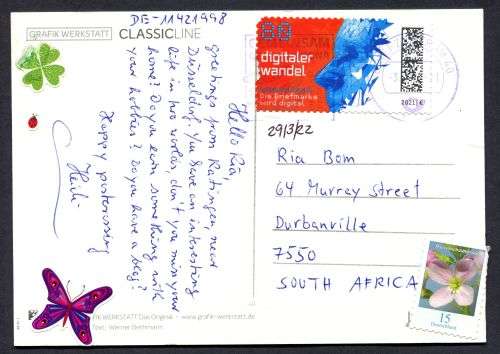 DE-11421998
GRAFIK WERKSTATT CLASSICLINE
Hello Ria,
greetings from Ratingen, near
Düsseldorf. You have an interesting
life in two worlds, don't you miss your
home? Do you earn something with
your hobbies? Do you have a bag?
Happy postcrossing
Heidi
digitaler
wandel
Die Briefmarke
wird digital
29/3/22
Ria Bom
64 Murray Street
Durbanville
7550
SOUTH AFRICA
15
Deutschland
WERKSTATT Das Original · www.grafik-werkstatt.de
Text: Werner Bethmann